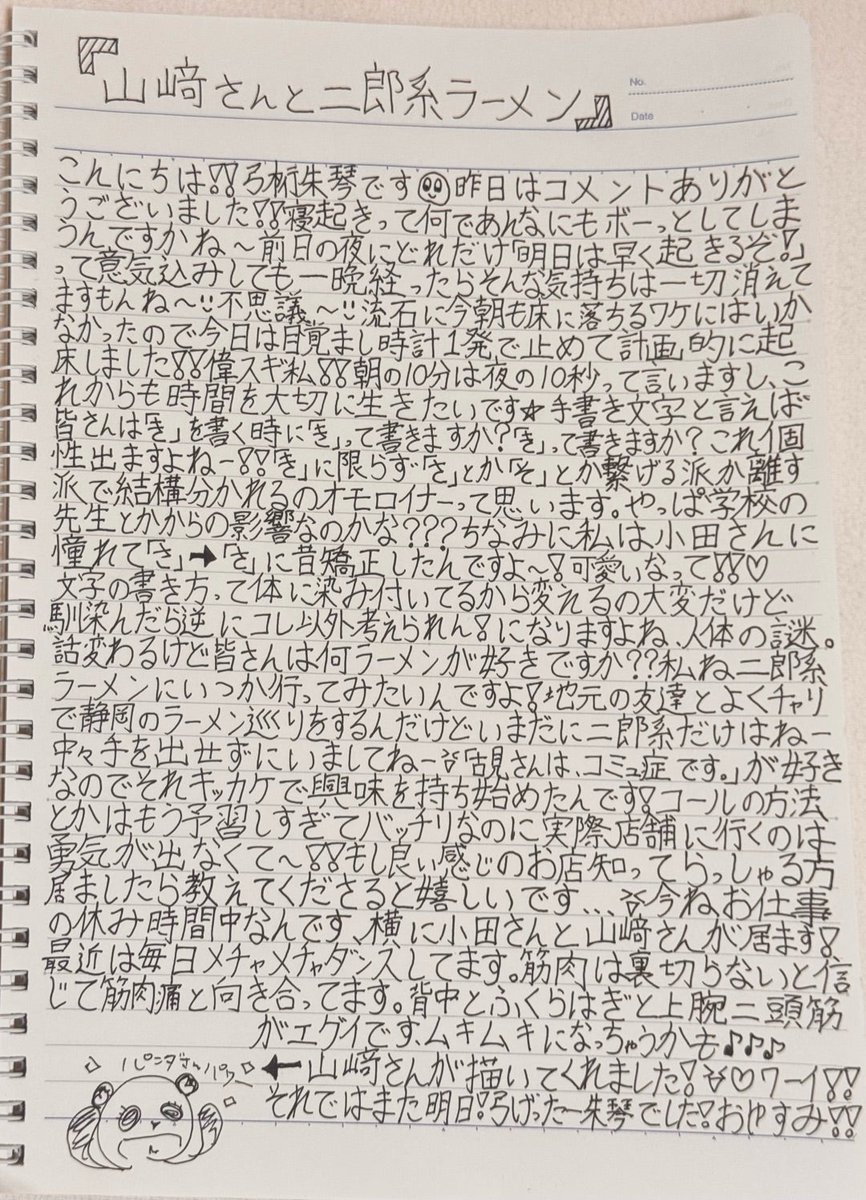 『山﨑さんと二郎系ラーメン』
No.
Date
こんにちは!!弓桁朱琴です昨日はコメントありがと
うございました!!寝起きって何であんなにもボーっとしてしま
うんですかね〜前日の夜にどれだけ「明日は早く起きるぞ!」
って意気込みしても一晩経ったらそんな気持ちは一切消えて
ますもんね〜不思議〜流石に今朝も床に落ちるワケにはいか
なかったので今日は目覚まし時計1発で止めて計画的に起
床しました!!偉スギ私!!朝の10分は夜の10秒って言いますし、こ
れからも時間を大切に生きたいです☆手書き文字と言えば
皆さんは「き」を書く時に「き」って書きますか?「き」って書きますか?これ個
性出ますよねー!!「き」に限らず「さ」とか「そ」とか繋げる派か離す
派で結構分かれるのオモロイナーって思います。やっぱ学校の
先生とかからの影響なのかな???ちなみに私は小田さんに
憧れて「さ」➡「さ」に昔矯正したんですよ〜!可愛いなって!!♡
文字の書き方って体に染み付いてるから変えるの大変だけど
馴染んだら逆にコレ以外考えられん!になりますよね、人体の謎。
話変わるけど皆さんは何ラーメンが好きですか??私ね二郎系
ラーメンにいつか行ってみたいんですよ!地元の友達とよくチャリ
で静岡のラーメン巡りをするんだけどいまだに二郎系だけはねー
中々手を出せずにいましてねー「古見さんは、コミュ症です。」が好き
なのでそれキッカケで興味を持ち始めたんです!コールの方法
とかはもう予習しすぎてバッチリなのに実際店舗に行くのは
勇気が出なくて〜!!もし良い感じのお店知ってらっしゃる方
居ましたら教えてくださると嬉しいです...今ね、お仕事
の休み時間中なんです、横に小田さんと山﨑さんが居ます!
最近は毎日メチャメチャダンスしてます。筋肉は裏切らないと信
じて筋肉痛と向き合ってます。背中とふくらはぎと上腕二頭筋
がエグイです、ムキムキになっちゃうかも♪♪♪
パンダさんパワー
⬅山﨑さんが描いてくれました!♡ワーイ!!
それではまた明日!弓げった〜朱琴でした!おゆすみ!!